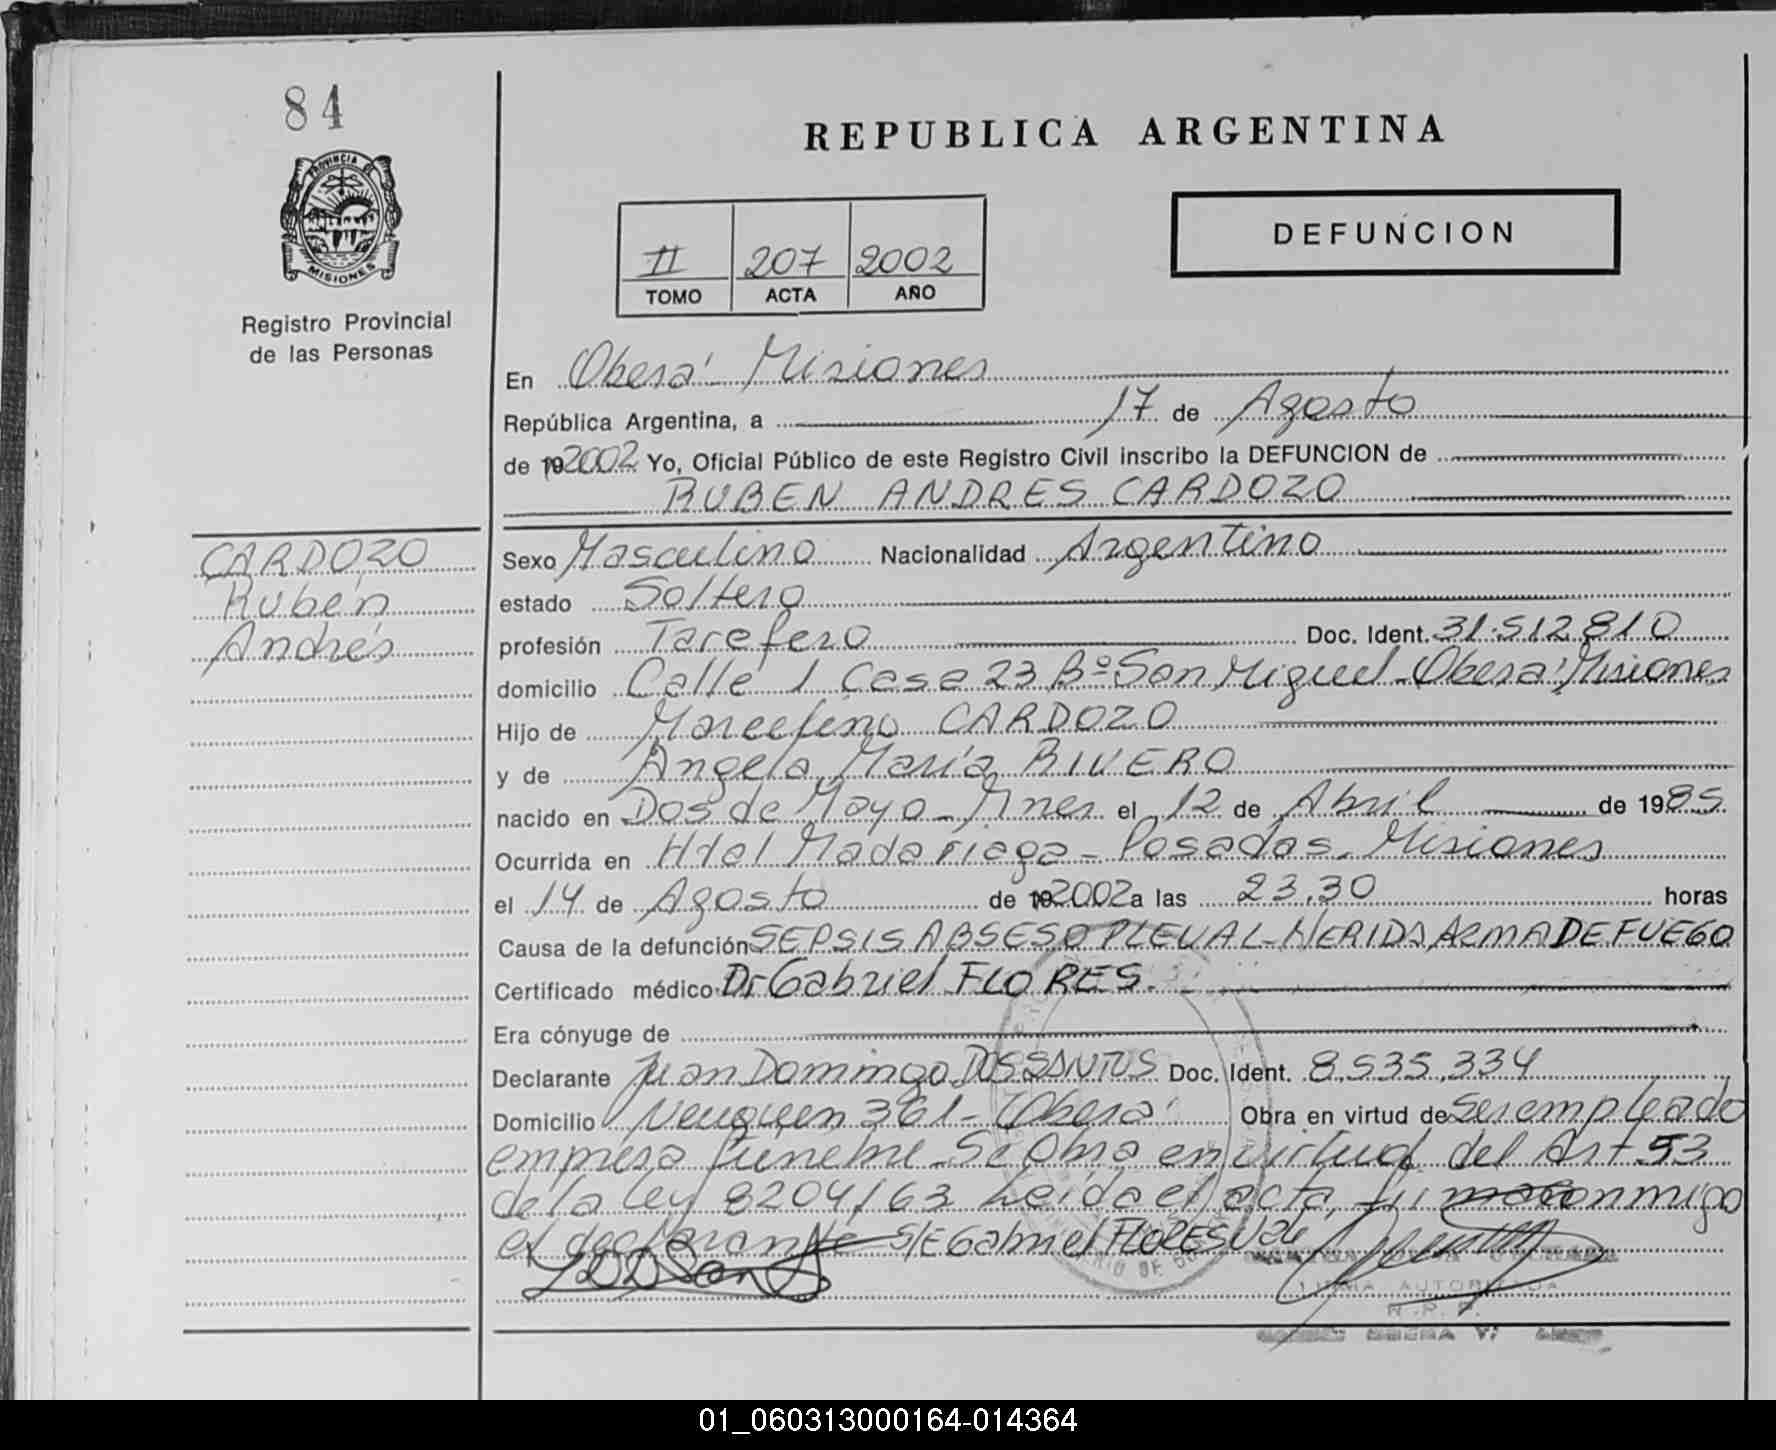 84
PROVINCIA DE
MISIONES
Registro Provincial
de las Personas
REPUBLICA ARGENTINA
II 207 2002
TOMO ACTA AÑO
DEFUNCION
En Oberá Misiones
República Argentina, a 17 de Agosto
de 19 2002 Yo, Oficial Público de este Registro Civil inscribo la DEFUNCION de
RUBEN ANDRES CARDOZO
CARDOZO
Rubén
Andrés
Sexo Masculino Nacionalidad Argentino
estado Soltero
profesión Tarefero Doc. Ident. 31.512.810
domicilio Calle 1 Casa 23 Bº San Miguel - Oberá Misiones
Hijo de Marcelino CARDOZO
y de Angela María RIVERO
nacido en Dos de Mayo - Mnes el 12 de Abril de 1985
Ocurrida en Htal Madariaga - Posadas. Misiones
el 14 de Agosto de 19 2002 a las 23,30 horas
Causa de la defunción SEPSIS ABSESO PLEUAL - HERIDA ARMA DE FUEGO
Certificado médico Dr Gabriel FLORES.
Era cónyuge de
Declarante Juan Domingo DOS SANTOS Doc. Ident. 8.535.334
Domicilio Neuquen 361 - Oberá Obra en virtud de Ser empleado
empresa fúnebre - Se Obra en virtud del Art 53
de la Ley 8204/63 Leída el acta, firma conmigo
el declarante S/E Gabriel FLORES Vale
FIRMA AUTORIZADA
01_060313000164-014364